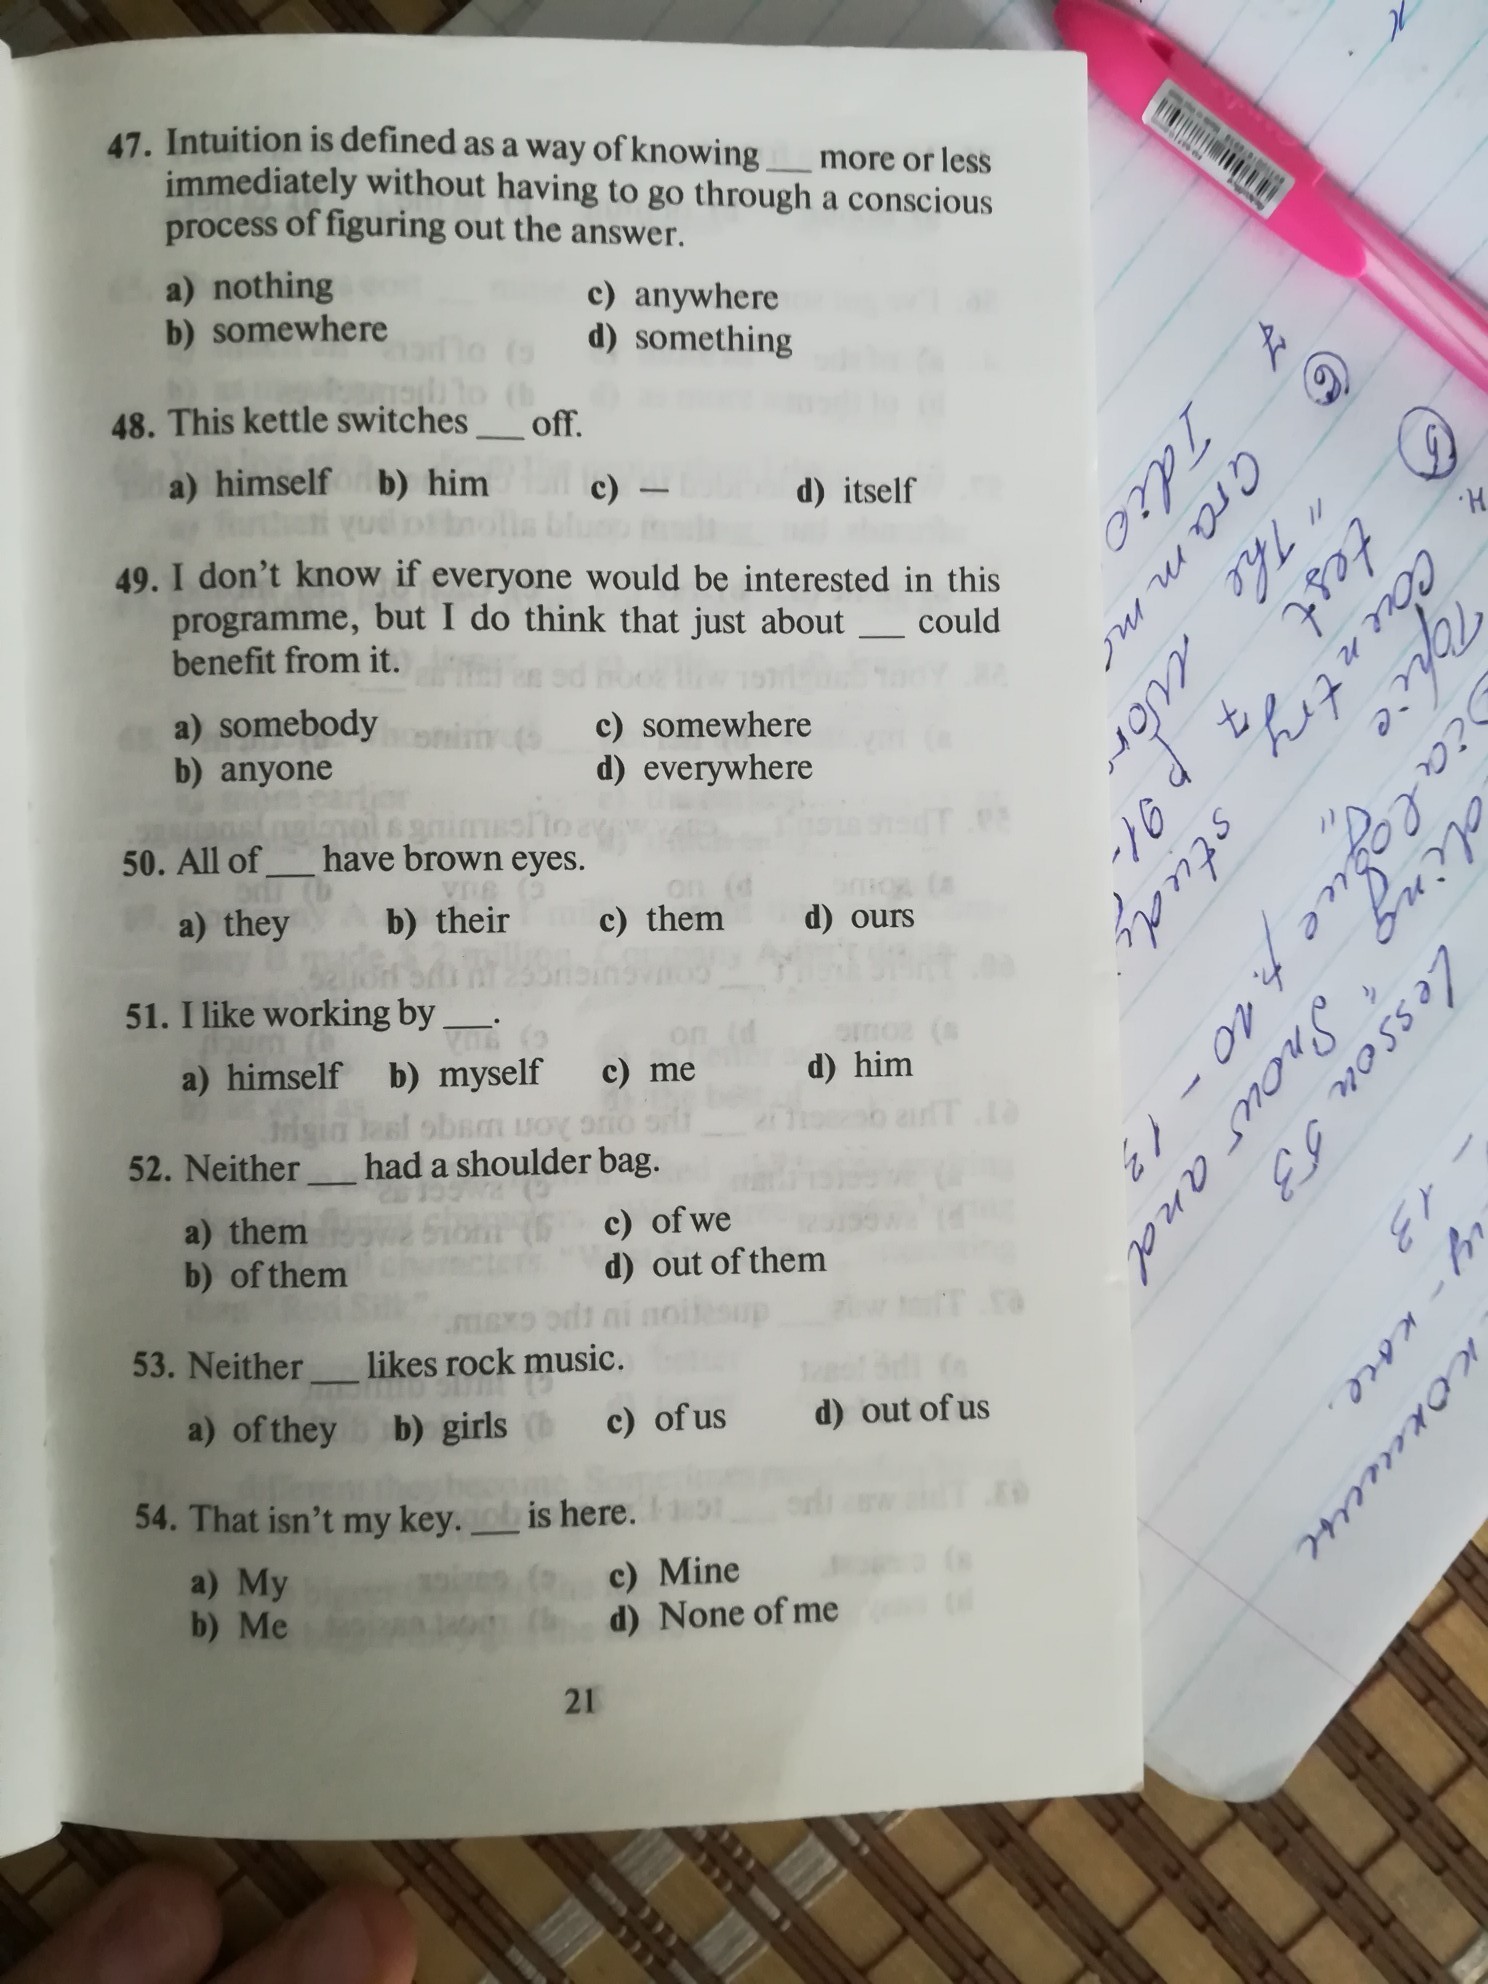 47. Intuition is defined as a way of knowing ___ more or less
immediately without having to go through a conscious
process of figuring out the answer.
a) nothing c) anywhere
b) somewhere d) something
48. This kettle switches ___ off.
a) himself b) him c) — d) itself
49. I don't know if everyone would be interested in this
programme, but I do think that just about ___ could
benefit from it.
a) somebody c) somewhere
b) anyone d) everywhere
50. All of ___ have brown eyes.
a) they b) their c) them d) ours
51. I like working by ___.
a) himself b) myself c) me d) him
52. Neither ___ had a shoulder bag.
a) them c) of we
b) of them d) out of them
53. Neither ___ likes rock music.
a) of they b) girls c) of us d) out of us
54. That isn't my key. ___ is here.
a) My c) Mine
b) Me d) None of me
21
7
6
5
"The
test
country
Topic
study
Snow
and
Lesson 53
13